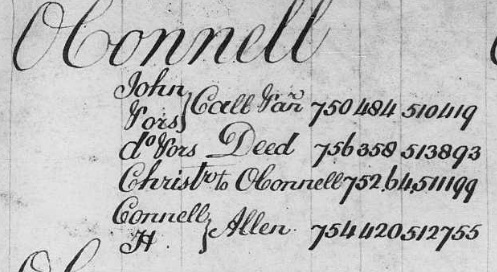 OConnell
John
Vors } Call Van 750 484 510419
do Vors Deed 756 358 513893
Christr to OConnell 752 64 511199
Connell
H } Allen 754 420 512755